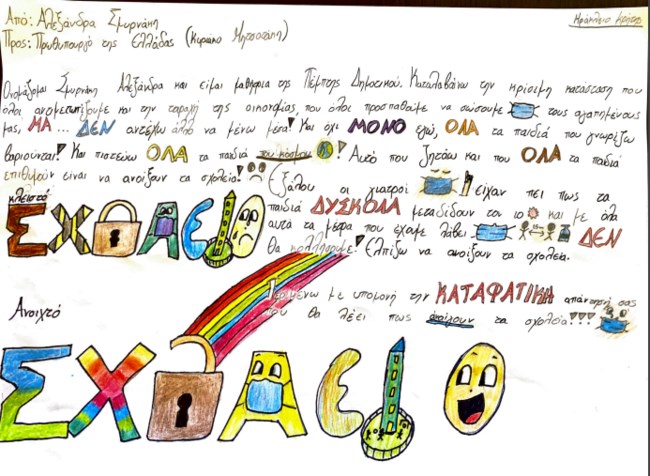 Από: Αλεξάνδρα Σμυρνάκη
Ηράκλειο Κρήτης
Προς: Πρωθυπουργό της Ελλάδας (Κυριάκο Μητσοτάκη)
Ονομάζομαι Σμυρνάκη Αλεξάνδρα και είμαι μαθήτρια της Πέμπτης Δημοτικού. Καταλαβαίνω την κρίσιμη κατάσταση που
όλοι αντιμετωπίζουμε και την ταραχή της οικονομίας, που όλοι προσπαθάμε να σώσουμε τους αγαπημένους
μας, ΜΑ ... ΔΕΝ αντέχω άλλο να μένω μέσα! Και όχι ΜΟΝΟ εγώ, ΟΛΑ τα παιδιά που γνωρίζω
βαριούνται! Και πιστεύω ΟΛΑ τα παιδιά του κόσμου! Αυτό που ζητάω και που ΟΛΑ τα παιδιά
επιθυμούν είναι να ανοίξουν τα σχολεία! Εξάλλου οι γιατροί είχαν πει πως τα
κλειστό
παιδιά ΔΥΣΚΟΛΑ μεταδίδουν τον ιο και με όλα
ΣΧΟΛΕΙΟ
αυτά τα μέτρα που έχουμε λάβει ΔΕΝ
θα κολλήσουμε! Ελπίζω να ανοίξουν τα σχολεία.
Περιμένω με υπομονή την ΚΑΤΑΦΑΤΙΚΗ απάντησή σας
Ανοιχτό
που θα λέει πως ανοίγουν τα σχολεία!!!
ΣΧΟΛΕΙΟ